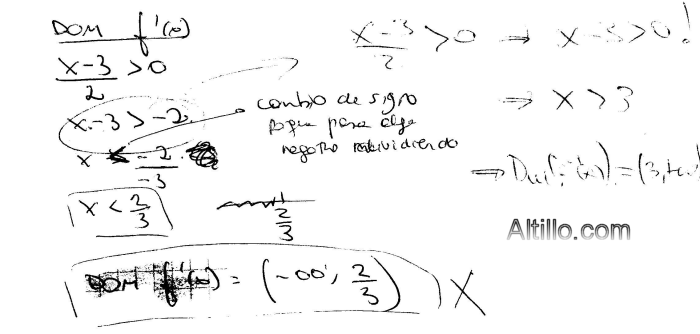 DOM f'(x)
x-3 / 2 > 0
x-3 > -2
x < -2 / -3
x < 2/3
cambio de signo
porque pasa algo
negativo dividiendo
2/3
DOM f'(x) = (-∞, 2/3) X
x-3 / 2 > 0 ⇒ x-3>0!
⇒ x > 3
⇒ Dom(f⁻¹(x)) = (3,+∞)
Altillo.com